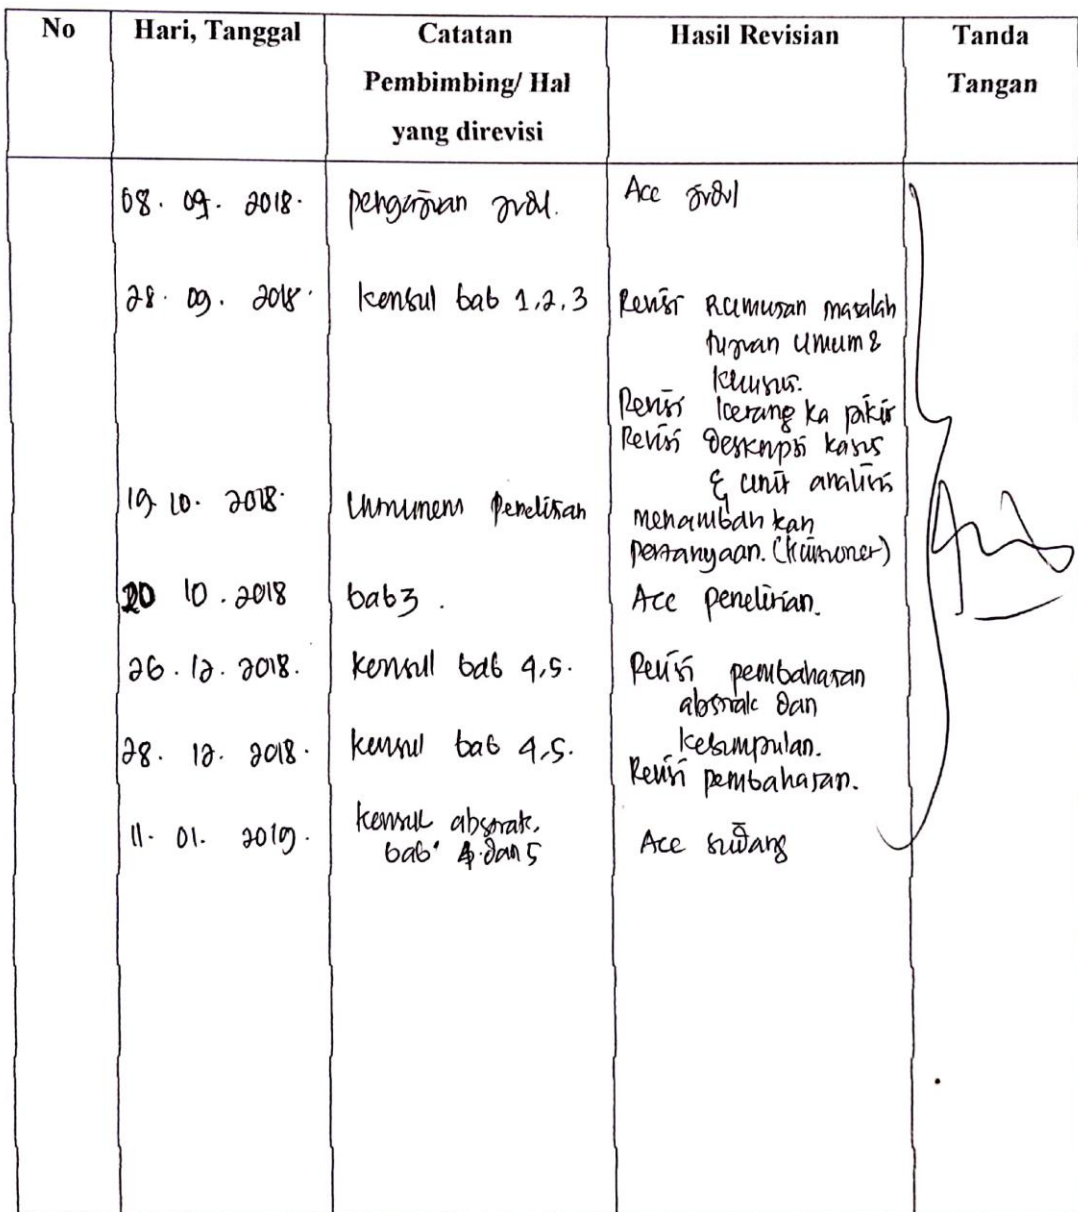 No
Hari, Tanggal
Catatan
Pembimbing/ Hal
yang direvisi
Hasil Revisian
Tanda
Tangan
08. 09. 2018.
pengajuan judul.
Acc judul
28. 09. 2018.
konsul bab 1,2,3
Revisi Rumusan masalah
tujuan umum &
khusus.
Revisi kerang ka pikir
Revisi Deskripsi kasus
& unit analisis
19. 10. 2018.
penelitian
menambah kan
pertanyaan. (kuisioner)
20 10. 2018
bab 3.
Acc penelitian.
26. 12. 2018.
konsul bab 4,5.
Revisi pembahasan
abstrak dan
kesimpulan.
28. 12. 2018.
konsul bab 4,5.
Revisi pembahasan.
11. 01. 2019.
konsul abstrak,
bab 4 dan 5
Acc sidang